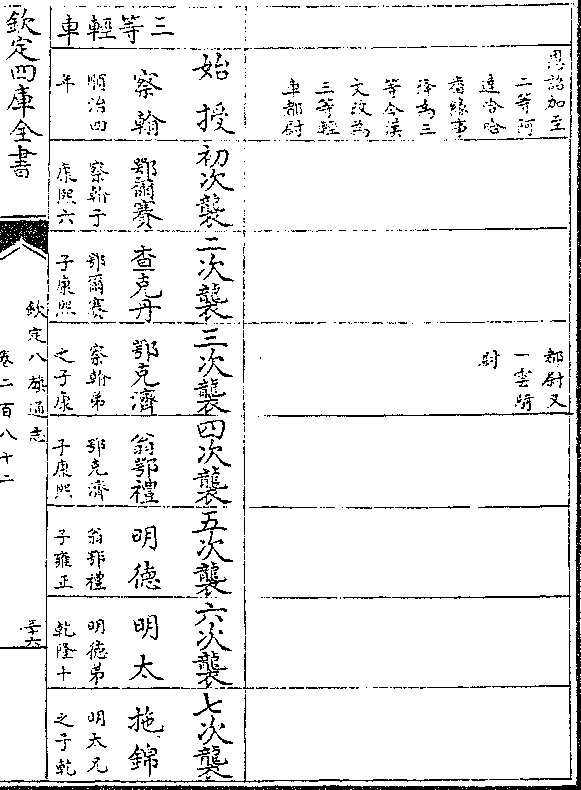 恩詔加至
二等阿
達哈哈
番緣事
降為三
等今漢
文改為
三等輕
車都尉
都尉又
一雲騎
尉
三等輕車
始授
察翰
順治四
年
初次襲
鄂爾賽
察翰子
康熙六
二次襲
查克丹
鄂爾賽
子康熙
三次襲
鄂克濟
察翰弟
之子康
四次襲
翁鄂禮
鄂克濟
子康熙
五次襲
明德
翁鄂禮
子雍正
六次襲
明太
明德弟
乾隆十
七次襲
拖錦
明太兄
之子乾
欽定四庫全書
欽定八旗通志
卷二百八十二
三十六